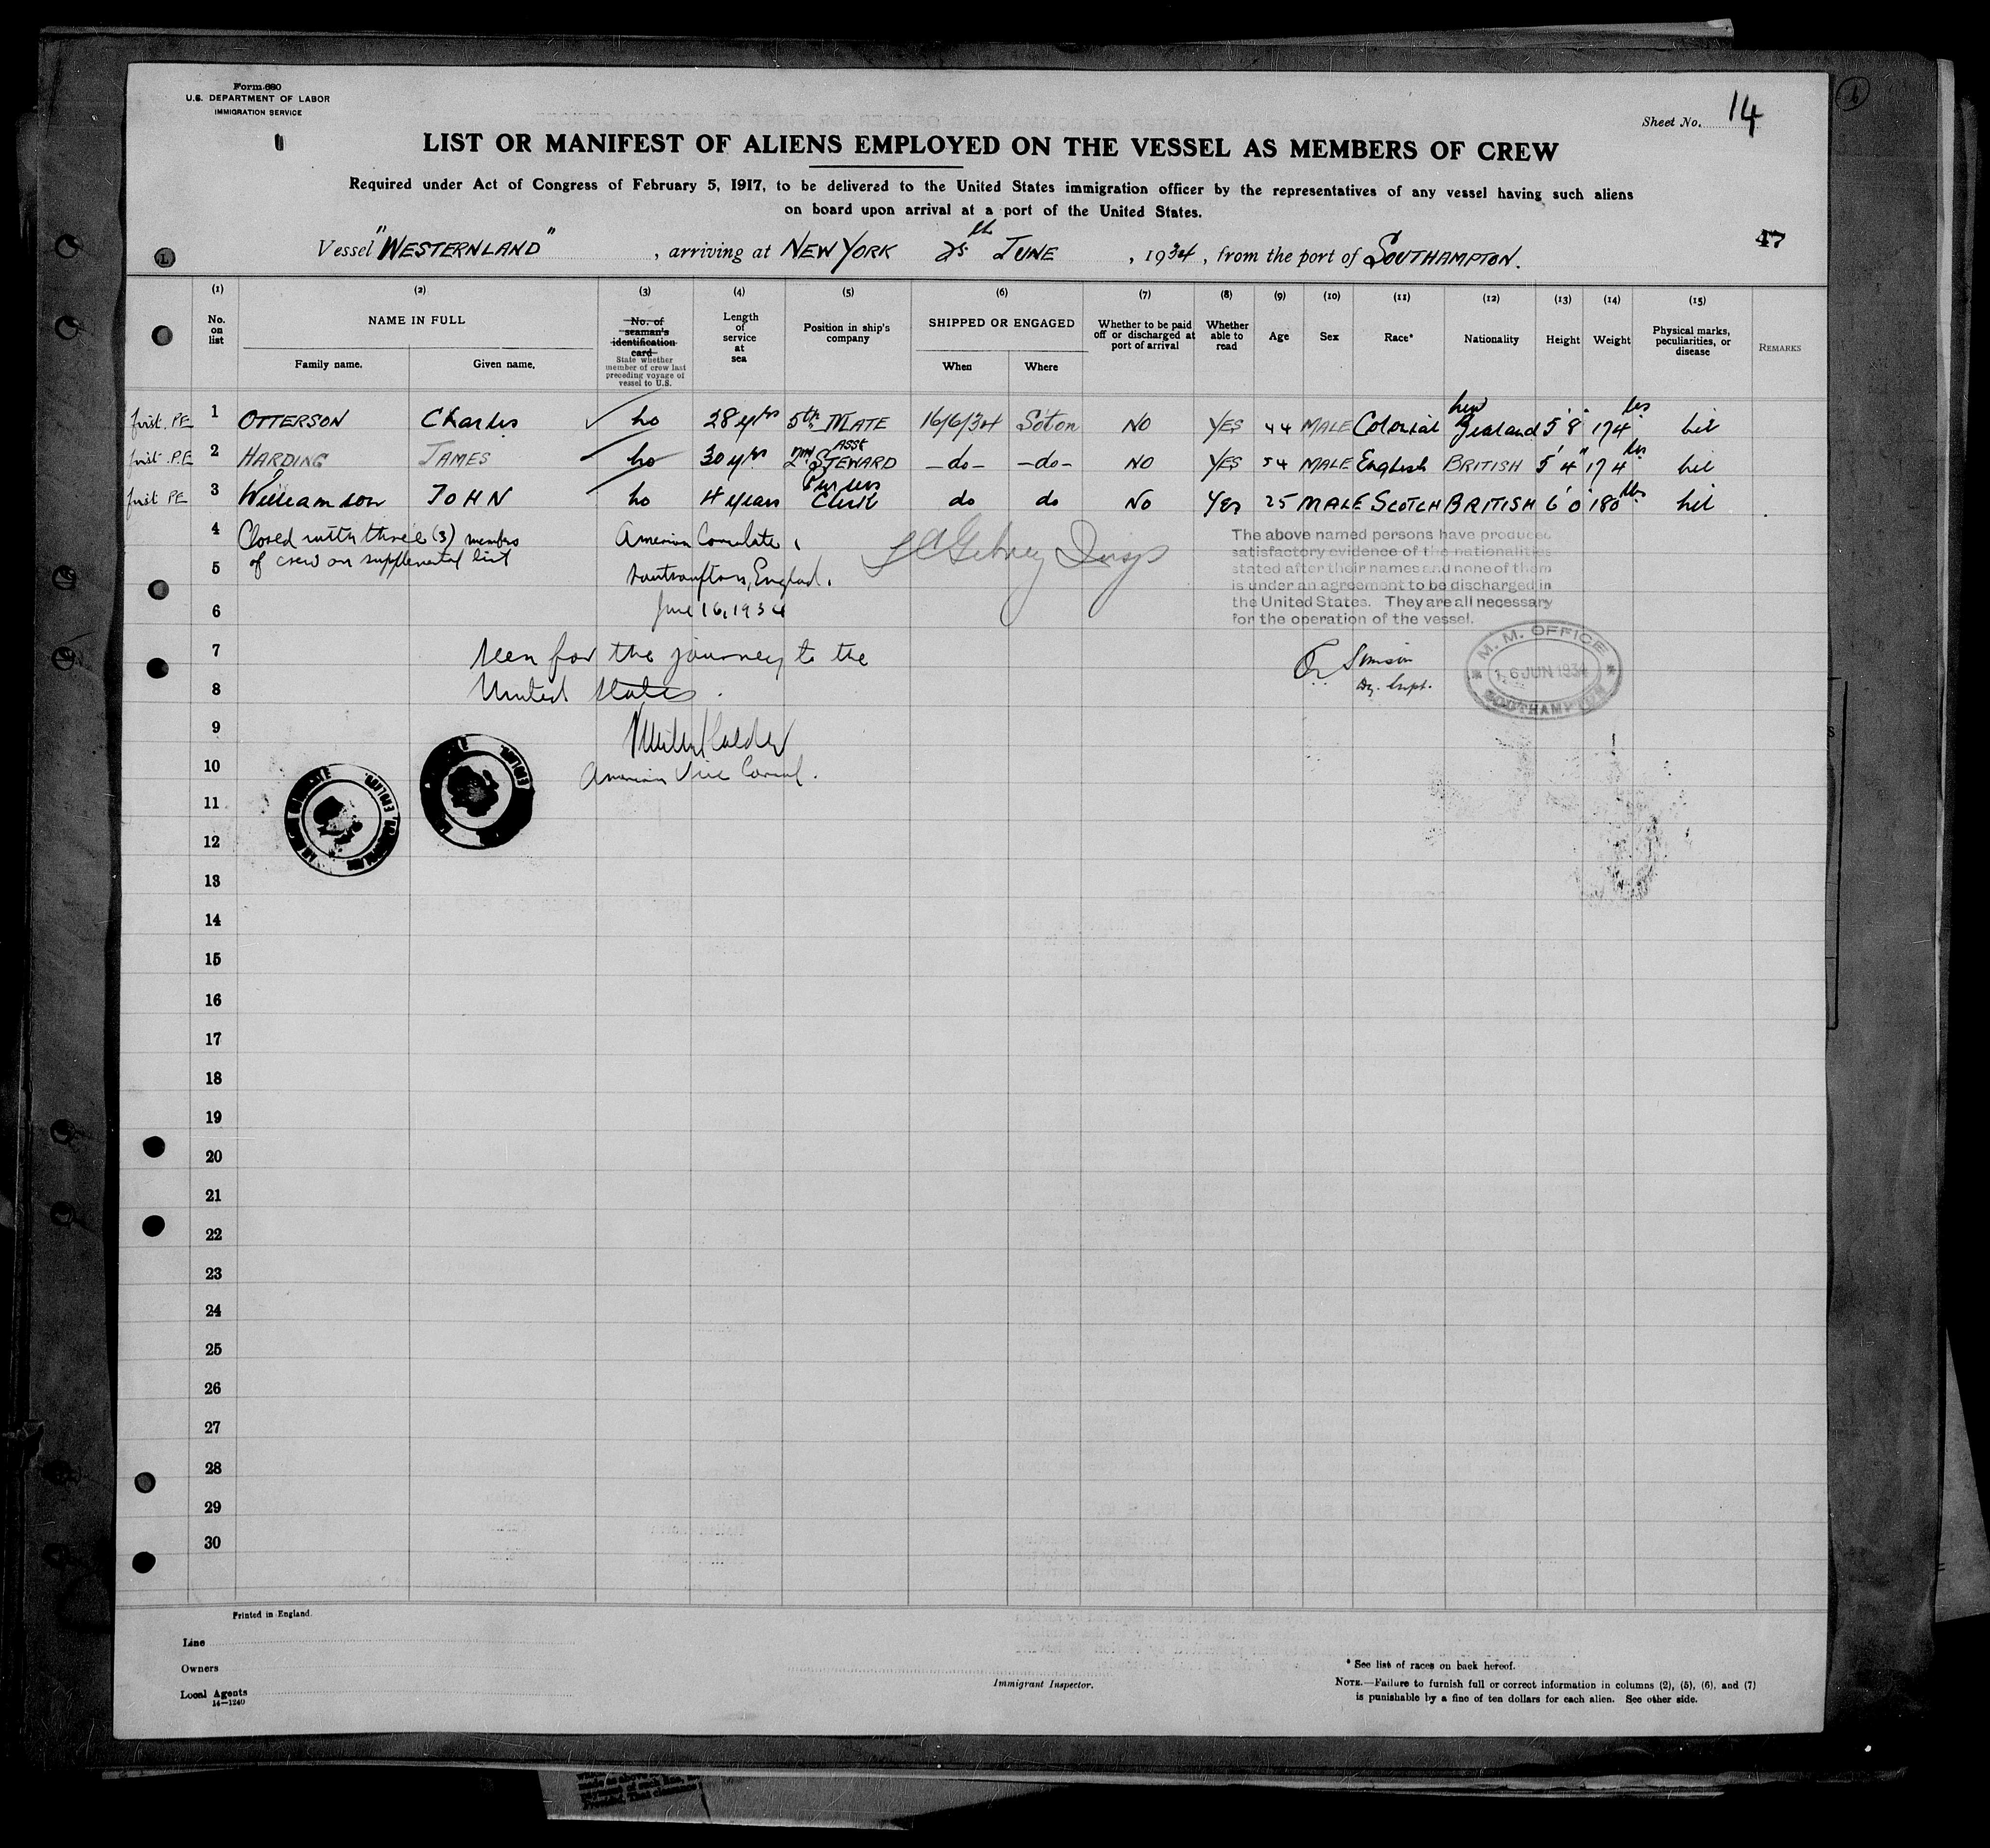 Form 680
U.S. DEPARTMENT OF LABOR
IMMIGRATION SERVICE
Sheet No. 14
LIST OR MANIFEST OF ALIENS EMPLOYED ON THE VESSEL AS MEMBERS OF CREW
Required under Act of Congress of February 5, 1917, to be delivered to the United States immigration officer by the representatives of any vessel having such aliens
on board upon arrival at a port of the United States.
47
Vessel "WESTERNLAND", arriving at NEW YORK 25th JUNE, 1934, from the port of SOUTHAMPTON.
(1) (2) (3) (4) (5) (6) (7) (8) (9) (10) (11) (12) (13) (14) (15)
No. on list
NAME IN FULL
Family name. Given name.
No. of seaman's identification card
State whether member of crew last preceding voyage of vessel to U.S.
Length of service at sea
Position in ship's company
SHIPPED OR ENGAGED
When Where
Whether to be paid off or discharged at port of arrival
Whether able to read
Age
Sex
Race*
Nationality
Height
Weight
Physical marks, peculiarities, or disease
REMARKS
first PE 1 OTTERSON Charles no 28 yrs 5th MATE 16/6/34 Soton NO YES 44 MALE Colonial New Zealand 5'8" 174 lbs nil
first P.E 2 HARDING JAMES no 30 yrs 2nd ASST STEWARD -do- -do- NO YES 54 MALE English BRITISH 5'4" 174 lbs nil
first PE 3 Williamson JOHN no 4 years Pursers Clerk do do No Yes 25 MALE SCOTCH BRITISH 6'0" 180 lbs nil
4 Closed with three (3) members
of crew on supplemental list
American Consulate,
5 Southampton, England.
6 June 16, 1934
The above named persons have produced
satisfactory evidence of the nationalities
stated after their names and none of them
is under an agreement to be discharged in
the United States. They are all necessary
for the operation of the vessel.
7 Seen for the journey to the
8 United States.
Dy. Supt.
M. M. OFFICE
16 JUN 1934
SOUTHAMPTON
9
10 American Vice Consul.
11
12
13
14
15
16
17
18
19
20
21
22
23
24
25
26
27
28
29
30
Printed in England.
Line
Owners
Local Agents
14—1240
Immigrant Inspector.
* See list of races on back hereof.
NOTE.—Failure to furnish full or correct information in columns (2), (5), (6), and (7)
is punishable by a fine of ten dollars for each alien. See other side.